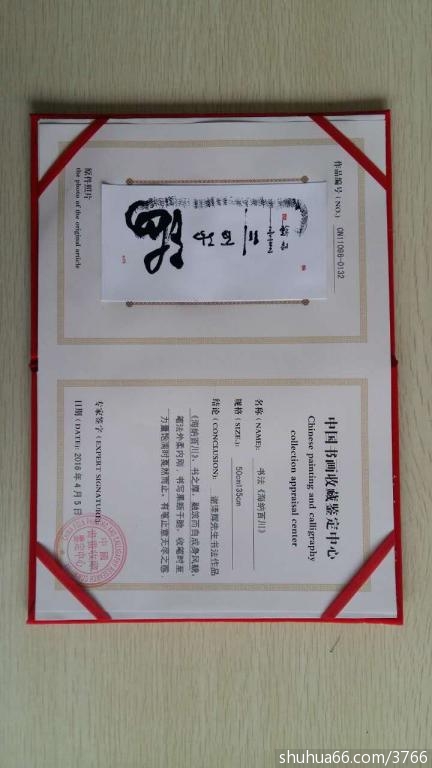 作品编号（NO.） CN11098-0132
原件照片
the photo of the original article
中国书画收藏鉴定中心
Chinese painting and calligraphy
collection appraisal center
名称（NAME）: 书法《海纳百川》
规格（SIZE:）: 50cm*35cm
结论（CONCLUSION）: 先生书法作品
《海纳百川》，书之厚，而自成身风貌，
笔法外柔内刚，书写果断干脆，收笔时至
力量饱满时戛然而止，有笔止意无尽之感。
专家签字（EXPERT SIGNATURE）:
日期（DATE）: 2016年4月5日
鉴定中心
shuhua66.com/3766